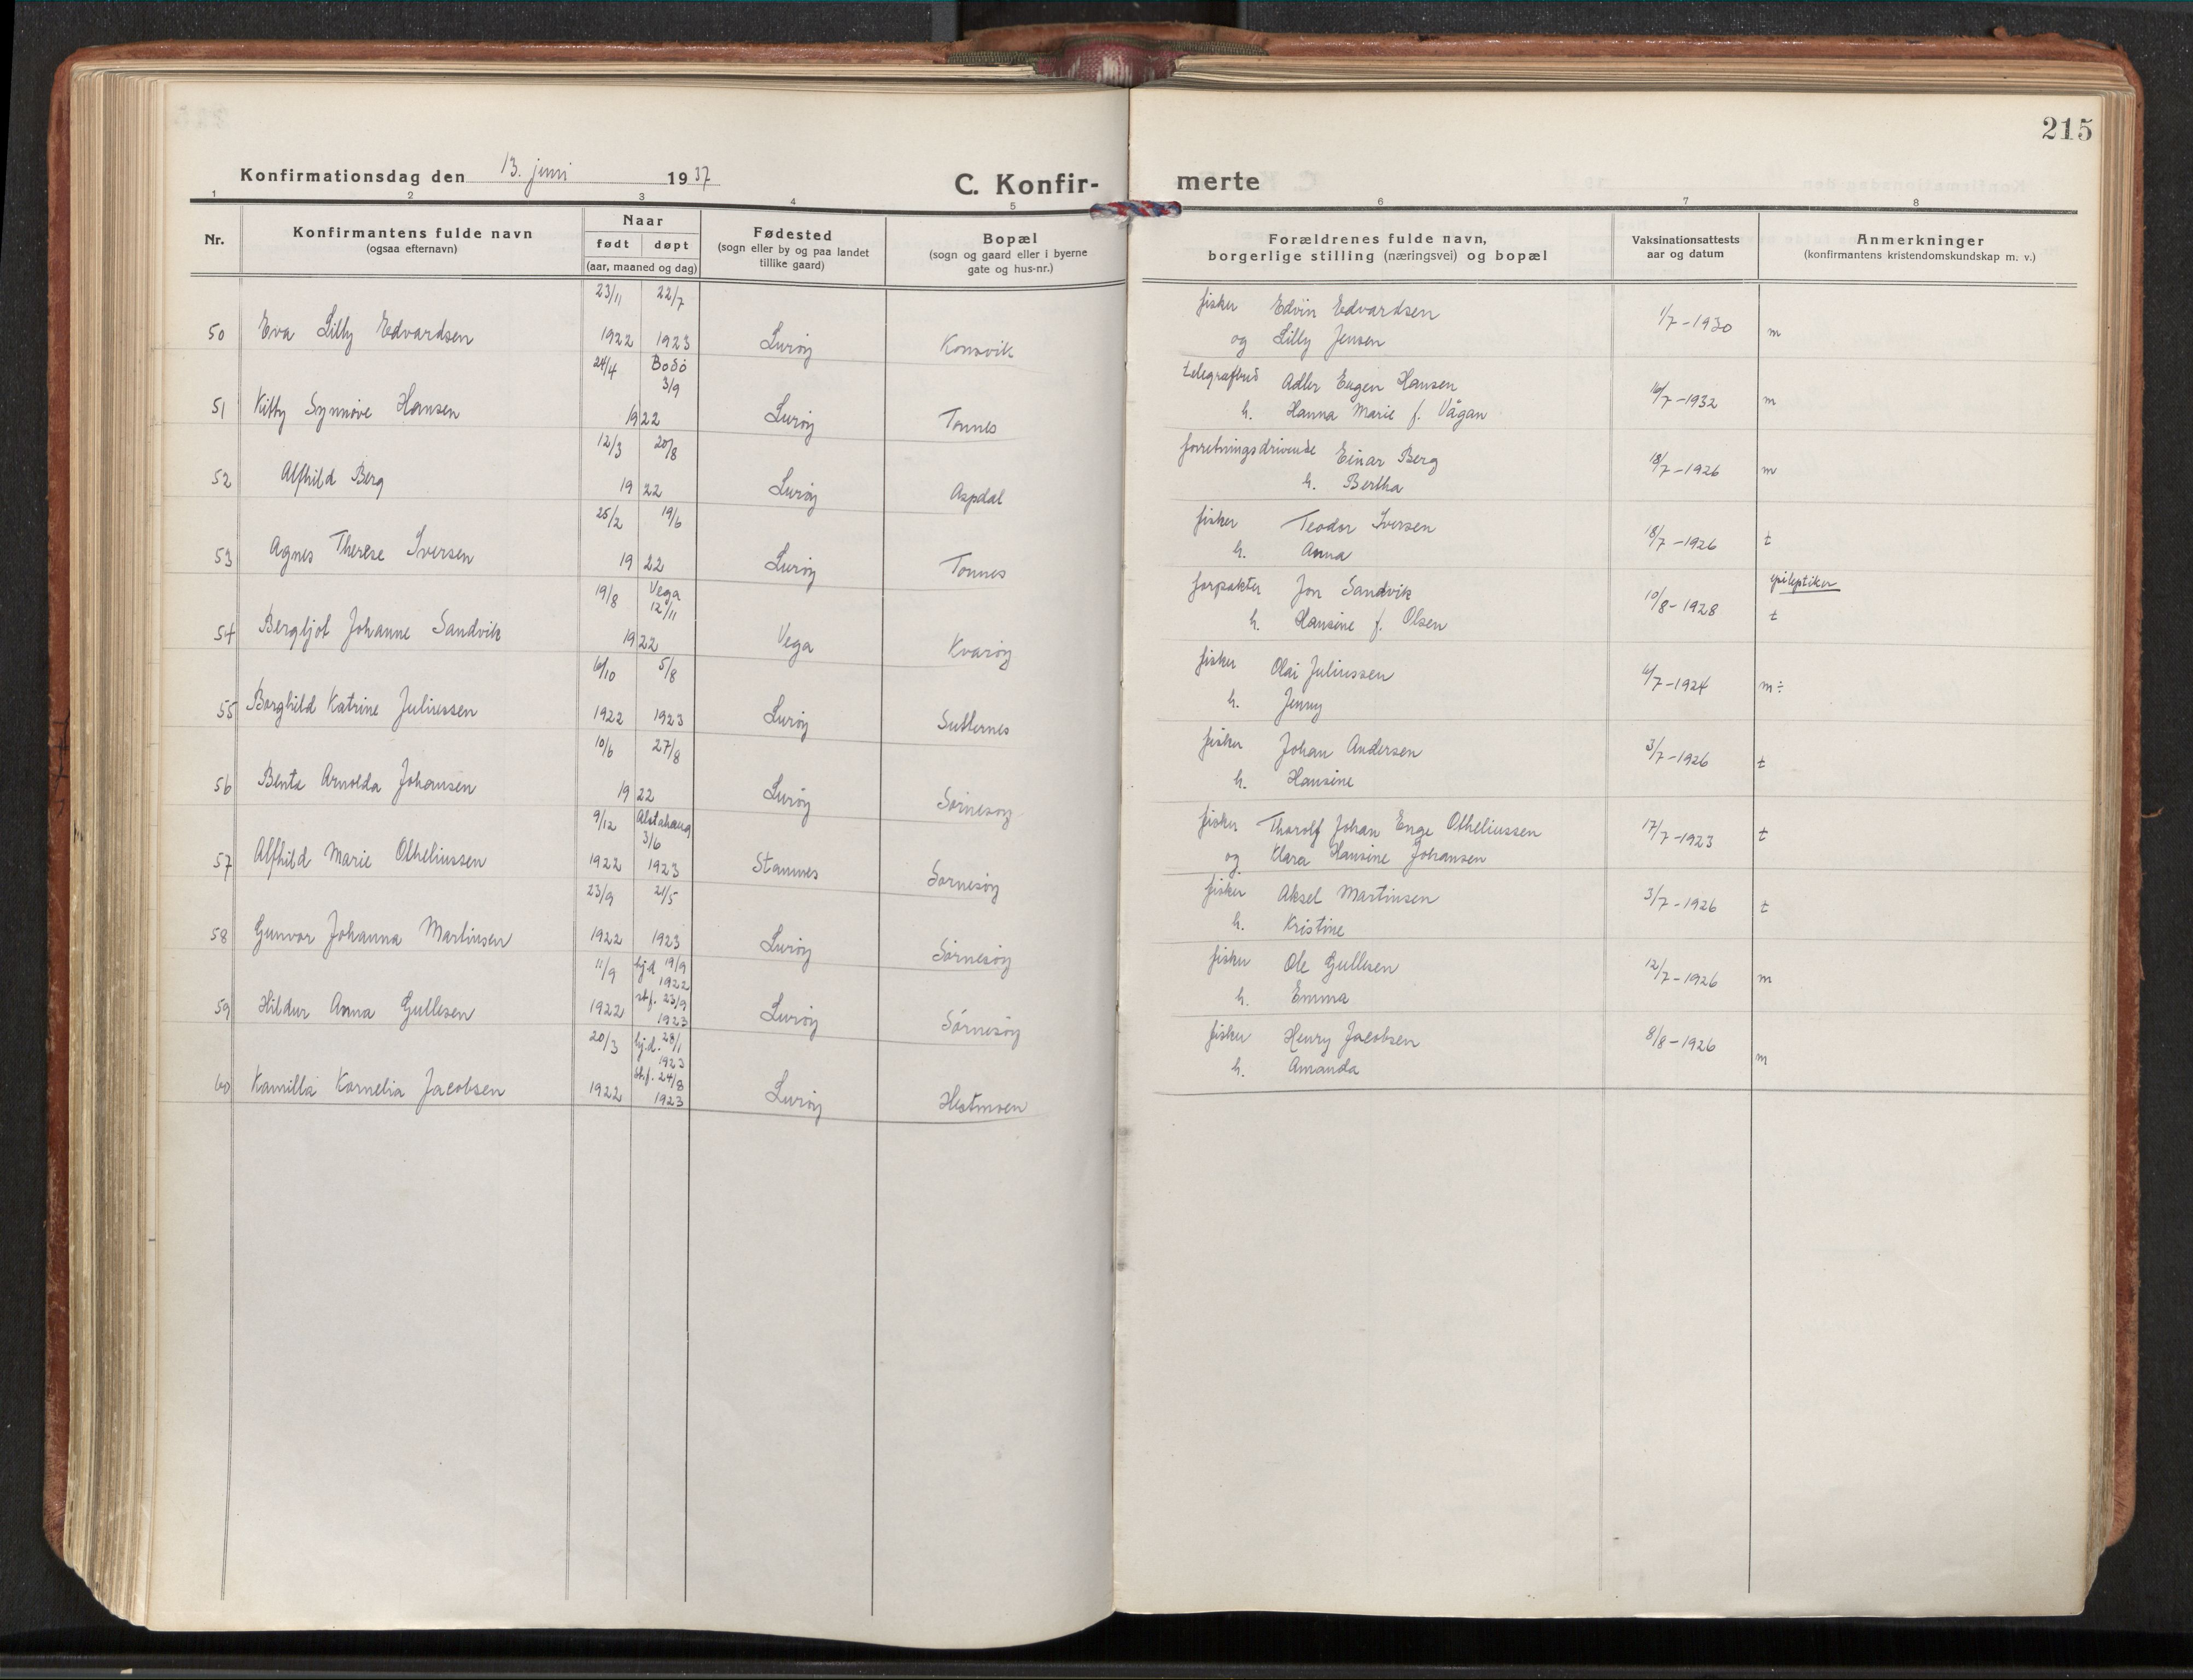 215
Konfirmationsdag den 13. juni 1937
C. Konfirmerte
1 2 3 4 5 6 7 8
Nr.
Konfirmantens fulde navn
(ogsaa efternavn)
Naar
født døpt
(aar, maaned og dag)
Fødested
(sogn eller by og paa landet
tillike gaard)
Bopæl
(sogn og gaard eller i byerne
gate og hus-nr.)
Forældrenes fulde navn,
borgerlige stilling (næringsvei) og bopæl
Vaksinationsattests
aar og datum
Anmerkninger
(konfirmantens kristendomskundskap m. v.)
23/11 22/7 fisker Edvin Edvardsen
50 Eva Lilly Edvardsen 1922 1923 Lurøy Konsvik og Lilly Jensen 1/7-1930 m
24/4 Bodö 3/9 telegrafbud Adler Eugen Hansen
51 Kitty Synnöve Hansen 1922 Lurøy Tonnes h. Hanna Marie f. Vågan /7-1932 m
12/3 20/8 forretningsdrivende Einar Berg
52 Alfhild Berg 1922 Lurøy Aspdal h. Bertha 18/7-1926 m
25/2 19/6 fisker Teodor Iversen
53 Agnes Therese Iversen 1922 Lurøy Tonnes h. Anna 18/7-1926 t
19/8 Vega 12/11 forpakter Jon Sandvik epileptiker
54 Bergljot Johanne Sandvik 1922 Vega Kvarøy h. Hansine f. Olsen 10/8-1928 t
6/10 5/8 fisker Olai Juliussen
55 Borghild Katrine Juliussen 1922 1923 Lurøy h. Jenny /7-1924 m÷
10/6 27/8 fisker Johan Andersen
56 Bente Arnolda Johansen 1922 Lurøy Sørnesøy h. Hansine 3/7-1926 t
9/12 Alstahaug 3/6 fisker Thorolf Johan Enge Otheliussen
57 Alfhild Marie Otheliussen 1922 1923 Stamnes Sørnesøy og Klara Hansine Johansen 17/7-1923 t
23/9 21/5 fisker Aksel Martinsen
58 Gunvor Johanna Martinsen 1922 1923 Lurøy Sørnesøy h. Kristine 3/7-1926 t
11/9 hj.d 19/9 1922 fisker Ole Gullesen
59 Hildur Anna Gullesen 1922 st.f. 23/9 1923 Lurøy Sørnesøy h. Emma 12/7-1926 m
20/3 hj.d. 28/1 1923 fisker Henry Jacobsen
60 Kamilla Kornelia Jacobsen 1922 st.f. 24/8 1923 Lurøy Hestmoen h. Amanda 8/8-1926 m